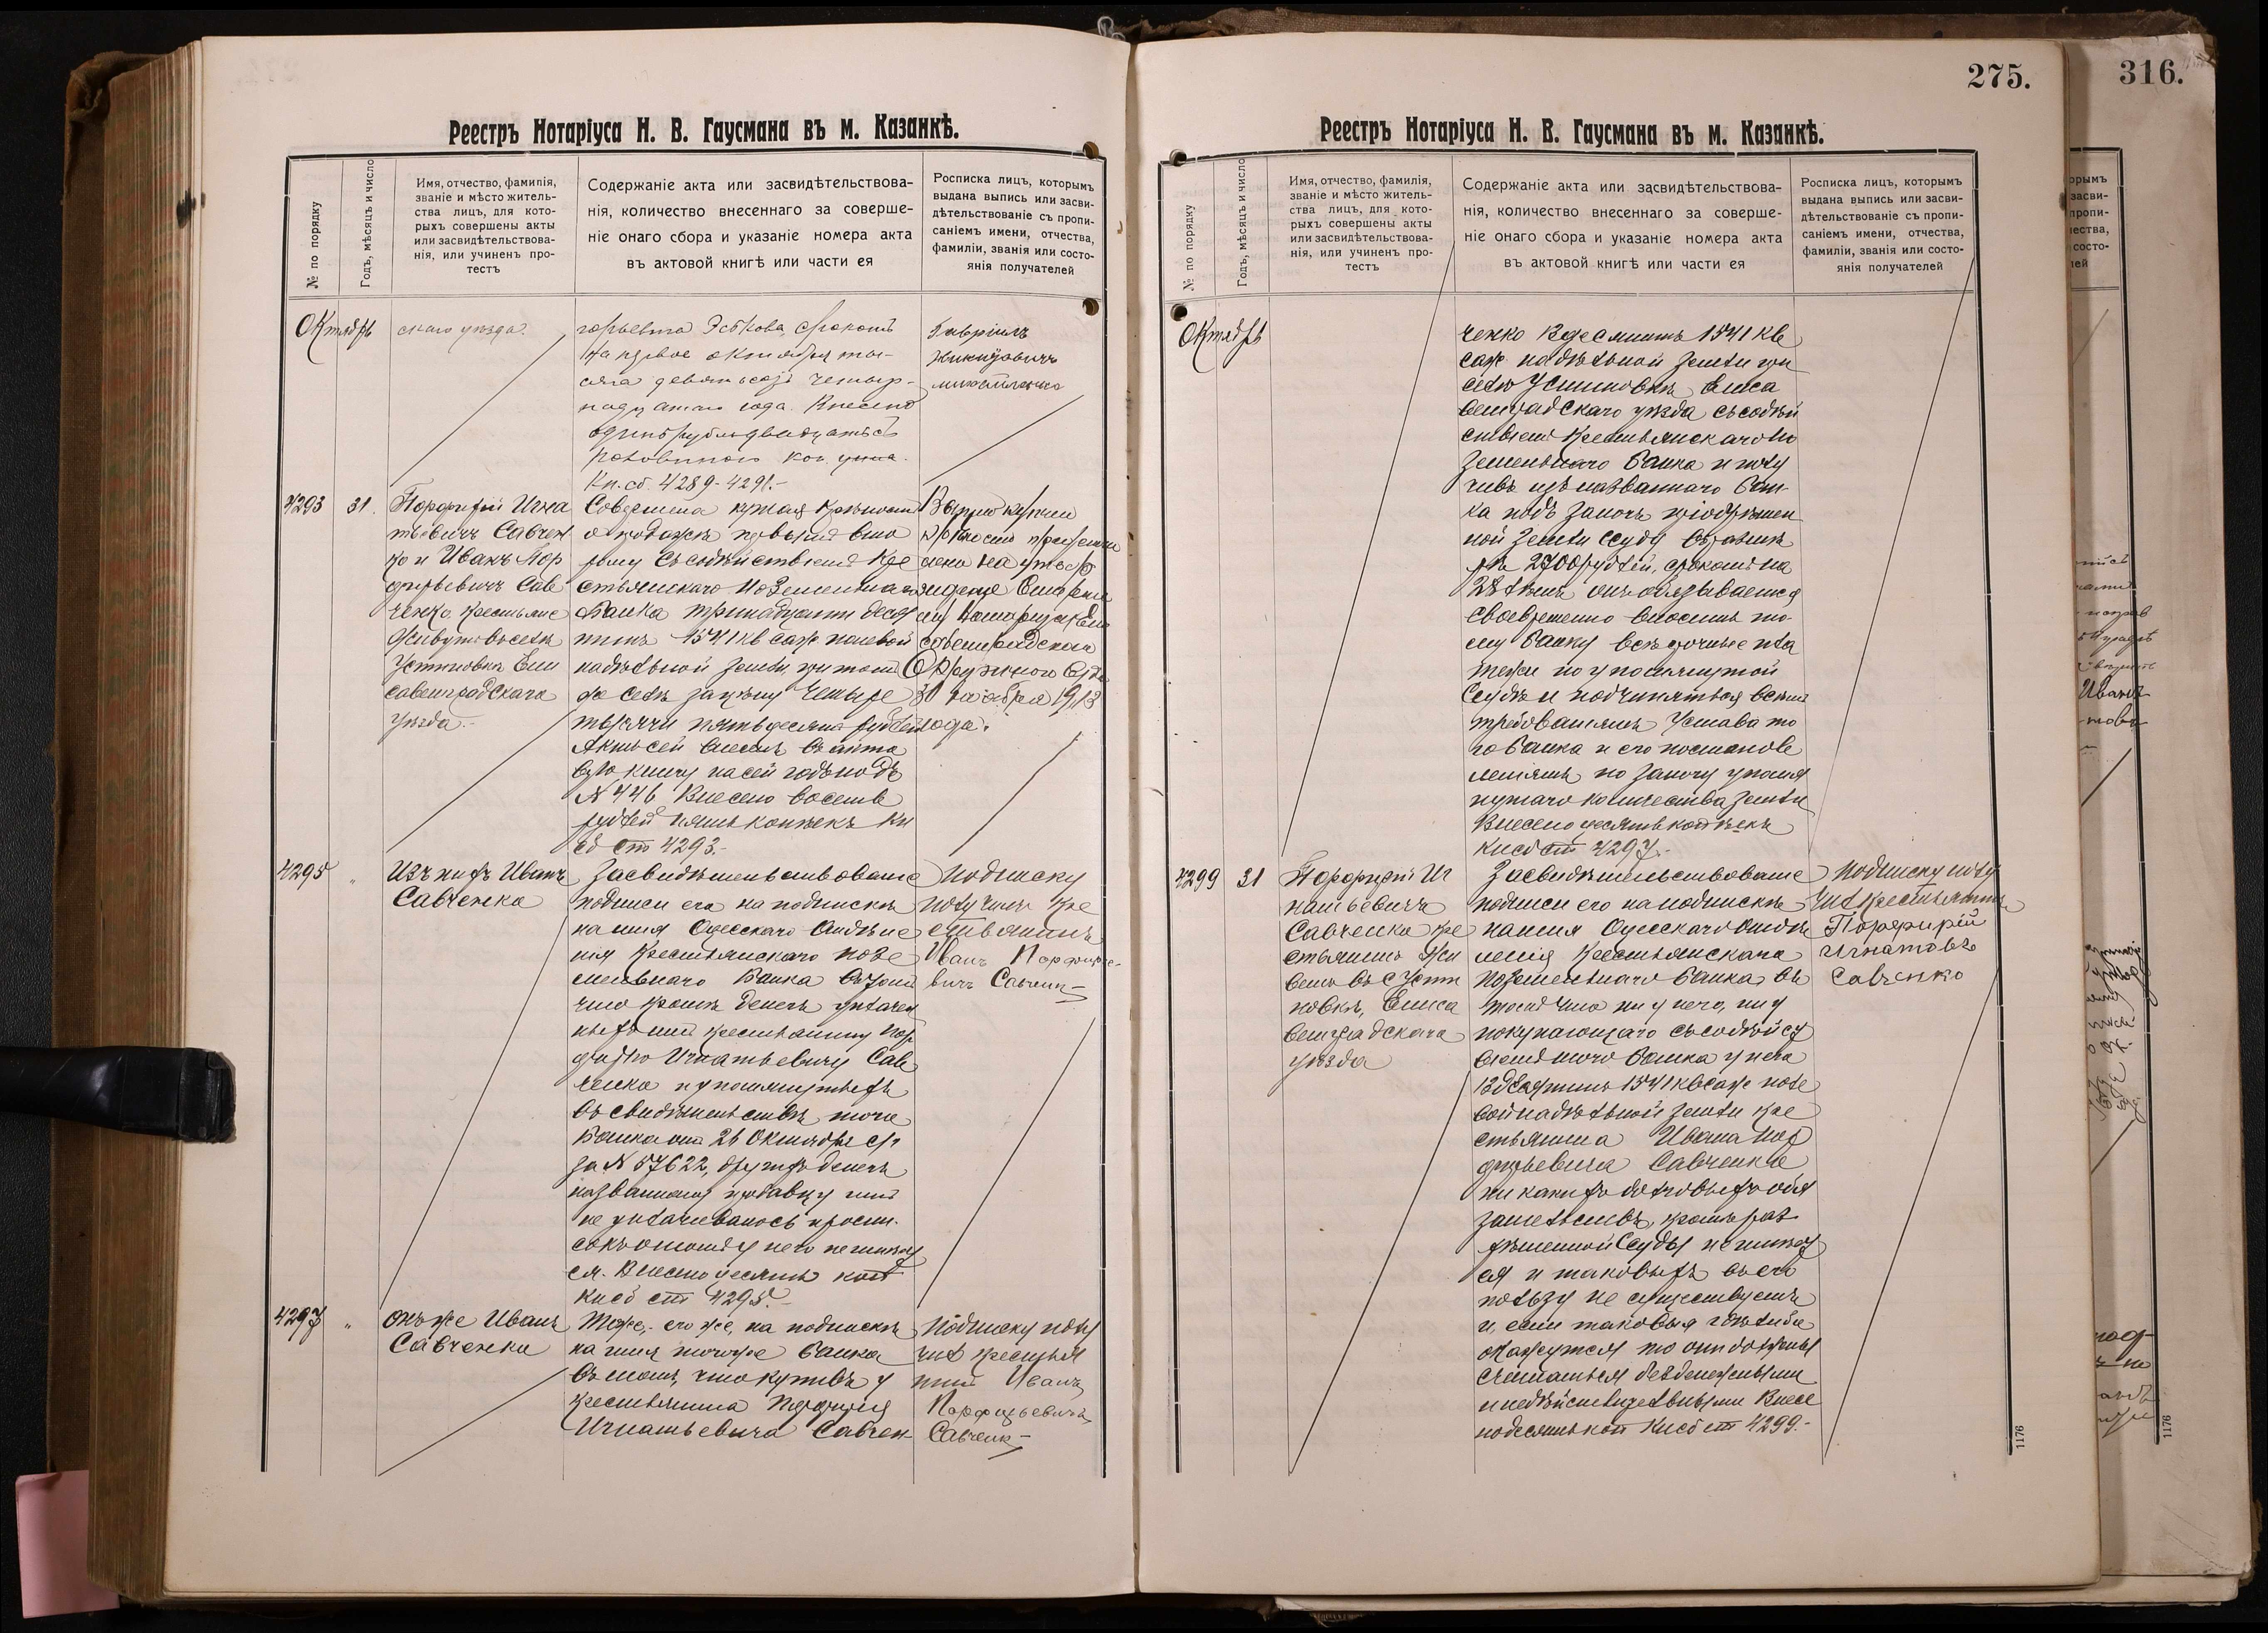 275.
316.
Реестръ Нотаріуса Н. В. Гаусмана въ м. Казанкѣ.
№ по порядку
Годъ, мѣсяцъ и число
Имя, отчество, фамилія,
званіе и мѣсто житель-
ства лицъ, для кото-
рыхъ совершены акты
или засвидѣтельствова-
нія, или учиненъ про-
тестъ
Содержаніе акта или засвидѣтельствова-
нія, количество внесеннаго за соверше-
ніе онаго сбора и указаніе номера акта
въ актовой книгѣ или части ея
Росписка лицъ, которымъ
выдана выпись или засви-
дѣтельствованіе съ пропи-
саніемъ имени, отчества,
фамиліи, званія или состо-
янія получателей
Октябрь
скаго уѣзда.
срокомъ
на первое октября ты-
сяча девятьсотъ четыр-
надцатаго года. Внесено
одинъ рубль двадцать съ
половиною коп.
Кн. сб. 4289-4291.-
Гавріилъ
4293
31.
Порфирій Игна
тьевичъ Савчен
ко и Иванъ Пор
фирьевичъ Сав
ченко, крестьяне
живутъ въ селѣ
Устиновкѣ Ели
саветградскаго
уѣзда.-
Совершена купчая крѣпость
о продажѣ первымъ вто
рому съ содѣйствіемъ Кре
стьянскаго Поземельнаго
Банка тринадцати деся
тинъ 1541 кв саж полевой
надѣльной земли при томъ
же селѣ за цѣну четыре
тысячи пятьдесятъ рублей
Актъ сей внесенъ въ акто
вую книгу на сей годъ подъ
№ 446 Внесено восемь
рублей пять копѣекъ Кн
сб ст 4293.-
Выпись купчей
крѣпости
на утвер
жденіе Старше
му Нотаріусу Ели
саветградскаго
Окружного Суда
30 ноября 1913
года.
4295
"
Изъ нихъ Иванъ
Савченко
Засвидѣтельствованіе
подписи его на подпискѣ
на имя Одесскаго Отдѣле
нія Крестьянскаго Позе
мельнаго Банка въ томъ
что кромѣ денегъ уплачен
ныхъ имъ крестьянину Пор
фирію Игнатьевичу Сав
ченко и упомянутыхъ
въ свидѣтельствѣ того
Банка отъ 26 Октября с/г
за № 57622, другихъ денегъ
названному продавцу имъ
не уплачивалось и росп.
сокъ о томъ у него не имѣет
ся. Внесено десять коп
Кн сб ст 4295.-
Подписку
получилъ Кре
стьянинъ
Иванъ Порфирье-
вичъ Савченк-
4297
"
Онъ же Иванъ
Савченко
Тоже, его же, на подпискѣ
на имя того же Банка
въ томъ, что купивъ у
крестьянина Порфирія
Игнатьевича Савчен-
Подписку полу
чилъ крестьян
инъ Иванъ
Порфирьевичъ
Савченк-
Реестръ Нотаріуса Н. В. Гаусмана въ м. Казанкѣ.
№ по порядку
Годъ, мѣсяцъ и число
Имя, отчество, фамилія,
званіе и мѣсто житель-
ства лицъ, для кото-
рыхъ совершены акты
или засвидѣтельствова-
нія, или учиненъ про-
тестъ
Содержаніе акта или засвидѣтельствова-
нія, количество внесеннаго за соверше-
ніе онаго сбора и указаніе номера акта
въ актовой книгѣ или части ея
Росписка лицъ, которымъ
выдана выпись или засви-
дѣтельствованіе съ пропи-
саніемъ имени, отчества,
фамиліи, званія или состо-
янія получателей
Октябрь
ченко 13 десятинъ 1541 кв
саж надѣльной земли при
селѣ Устиновкѣ Елиса
ветградскаго уѣзда съ содѣй
ствіемъ Крестьянскаго По
земельнаго Банка и полу
чивъ изъ названнаго Бан-
ка подъ залогъ пріобрѣтен
ной земли ссуду въ размѣ
рѣ 2700 рублей, срокомъ на
28 лѣтъ онъ обязывается
своевременно вносить то-
му Банку всѣ срочные пла
тежи по упомянутой
ссудѣ и подчиняться всѣмъ
требованіямъ Устава то
го Банка и его постановле
леніямъ по залогу упомя
нутаго количества земли
Внесено десять копѣекъ
Кн сб ст 4297.-
4299
31
Порфирій Иг
натьевичъ
Савченко кре
стьянинъ жи
ветъ въ с Усти
новкѣ, Елиса
ветградскаго
уѣзда
Засвидѣтельствованіе
подписи его на подпискѣ
на имя Одесскаго Отдѣ
ленія Крестьянскаго
Поземельнаго Банка въ
томъ что ни у него, ни у
покупающаго съ содѣйст
віемъ того Банка у него
13 десятинъ 1541 кв саж поле
вой надѣльной земли кре
стьянина Ивана Пор
фирьевича Савченко
никакихъ долговыхъ обя
зательствъ, кромѣ раз
рѣшенной ссуды не имѣет
ся и таковыхъ въ его
пользу не существуетъ
и, если таковыя гдѣ либо
окажутся то они должны
считаться безденежными
и недѣйствительными Внесе
но десять коп Кн сб ст 4299.-
Подписку полу
чилъ крестьянинъ
Порфирій
Игнатовъ
Савченко
1176
1176